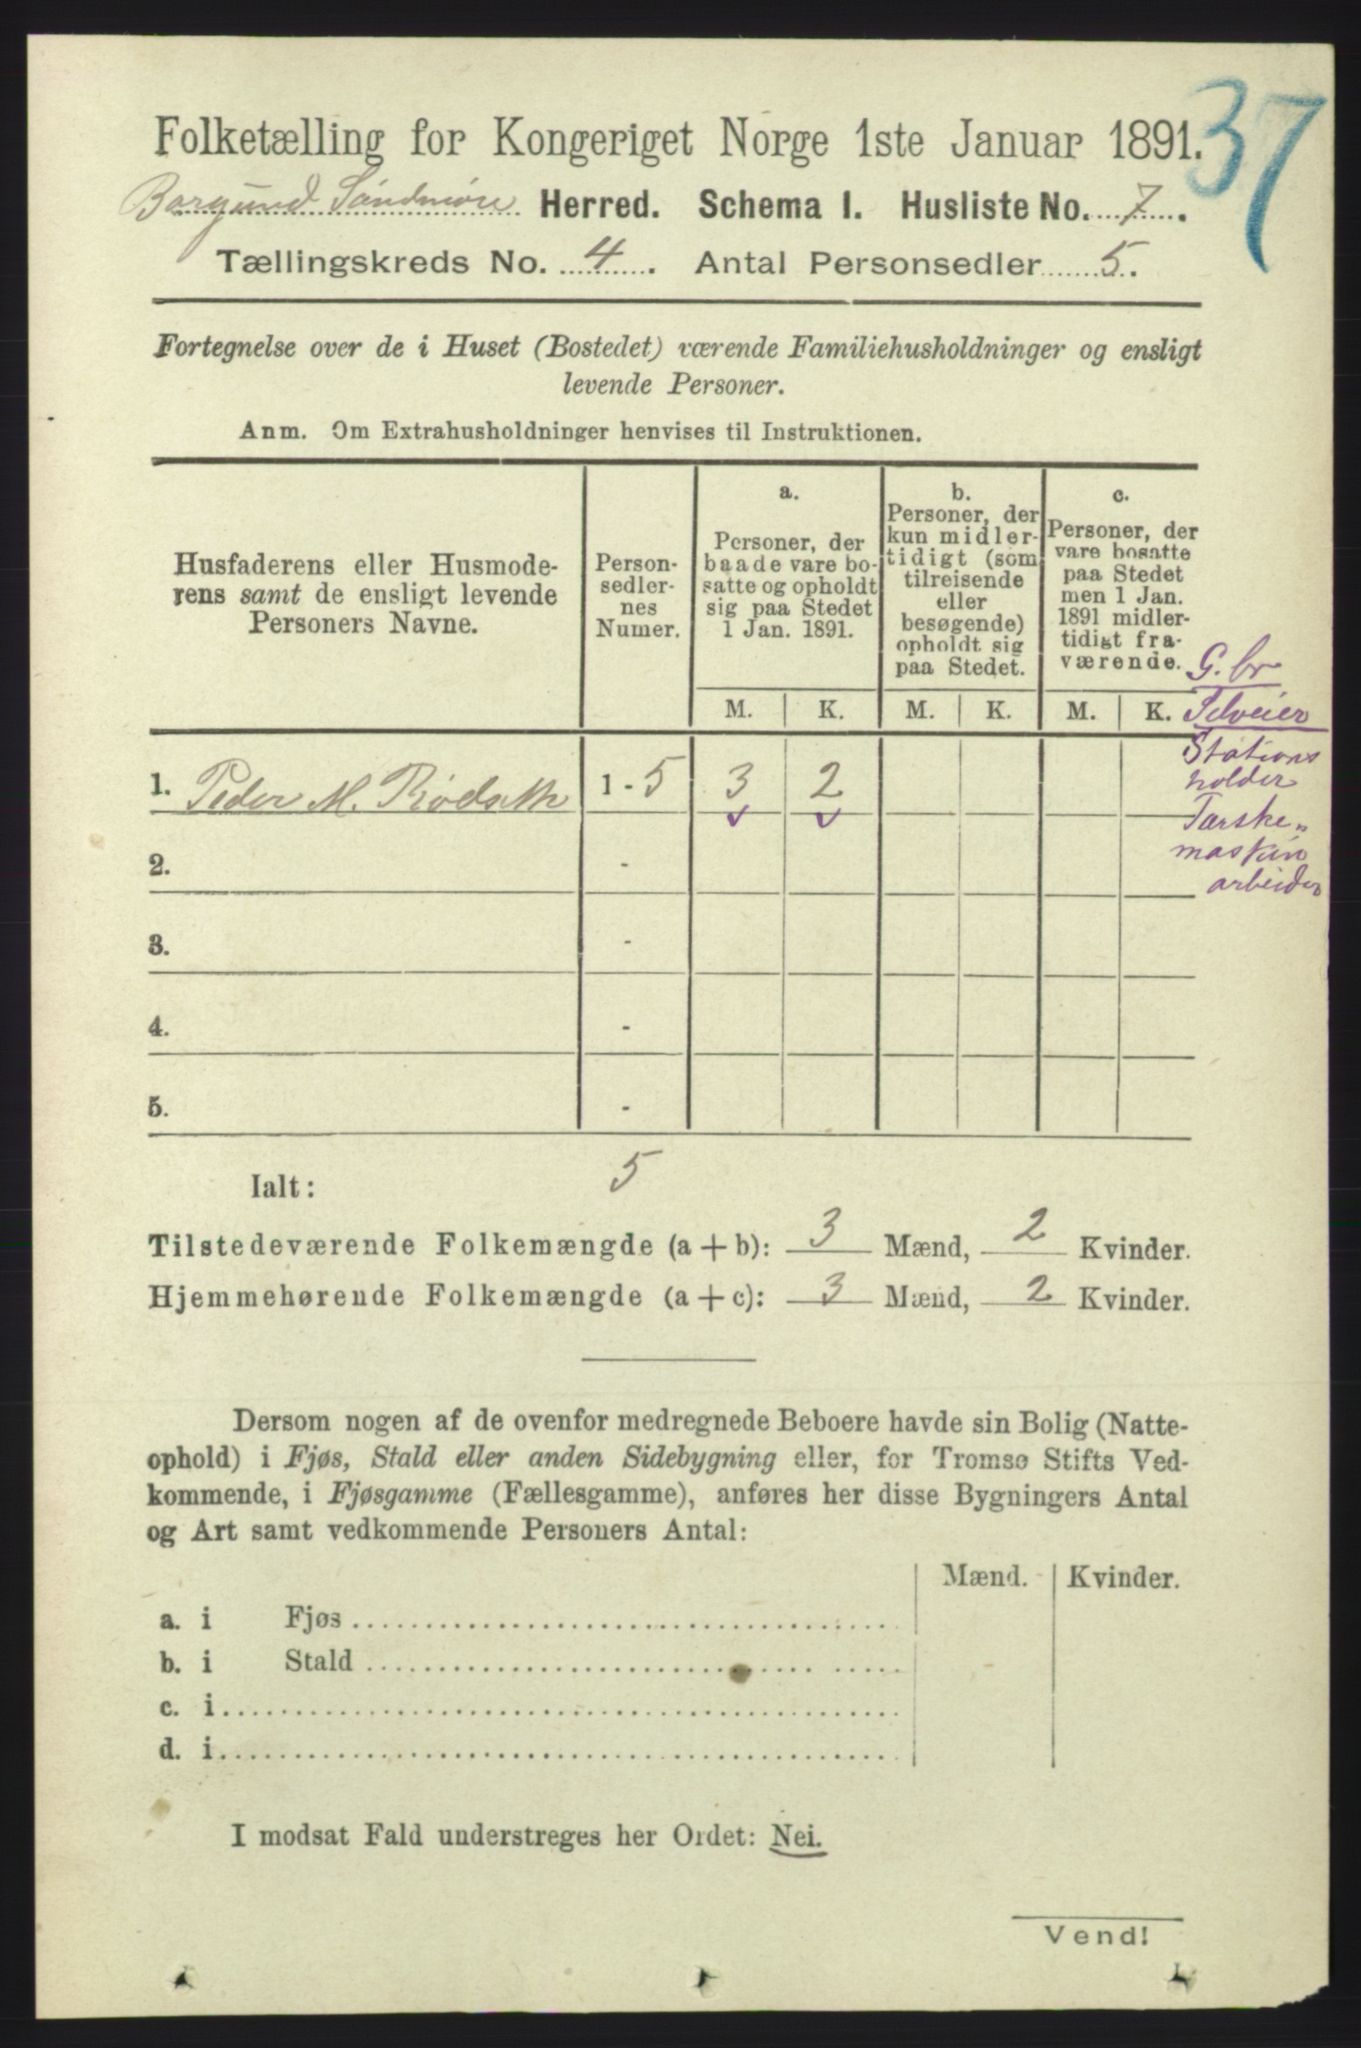 37
Folketælling for Kongeriget Norge 1ste Januar 1891.
Borgund Söndmöre Herred. Schema I. Husliste No. 7.
Tællingskreds No. 4. Antal Personsedler 5.
Fortegnelse over de i Huset (Bostedet) værende Familiehusholdninger og ensligt
levende Personer.
Anm. Om Extrahusholdninger henvises til Instruktionen.
Husfaderens eller Husmode-
rens samt de ensligt levende
Personers Navne.
Person-
sedler-
nes
Numer.
a.
Personer, der
baade vare bo-
satte og opholdt
sig paa Stedet
1 Jan. 1891.
b.
Personer, der
kun midler-
tidigt (som
tilreisende
eller
besøgende)
opholdt sig
paa Stedet.
c.
Personer, der
vare bosatte
paa Stedet
men 1 Jan.
1891 midler-
tidigt fra-
værende.
M. K. M. K. M. K.
G. br
Selveier
Stations
holder
Tærske-
maskin
arbeider
1. Peder M. Rödseth 1 - 5 3 2
2. -
3. -
4. -
5. -
Ialt: 5
Tilstedeværende Folkemængde (a + b): 3 Mænd, 2 Kvinder.
Hjemmehørende Folkemængde (a + c): 3 Mænd, 2 Kvinder.
Dersom nogen af de ovenfor medregnede Beboere havde sin Bolig (Natte-
ophold) i Fjøs, Stald eller anden Sidebygning eller, for Tromsø Stifts Ved-
kommende, i Fjøsgamme (Fællesgamme), anføres her disse Bygningers Antal
og Art samt vedkommende Personers Antal:
Mænd. Kvinder.
a. i Fjøs
b. i Stald
c. i
d. i
I modsat Fald understreges her Ordet: Nei.
Vend!